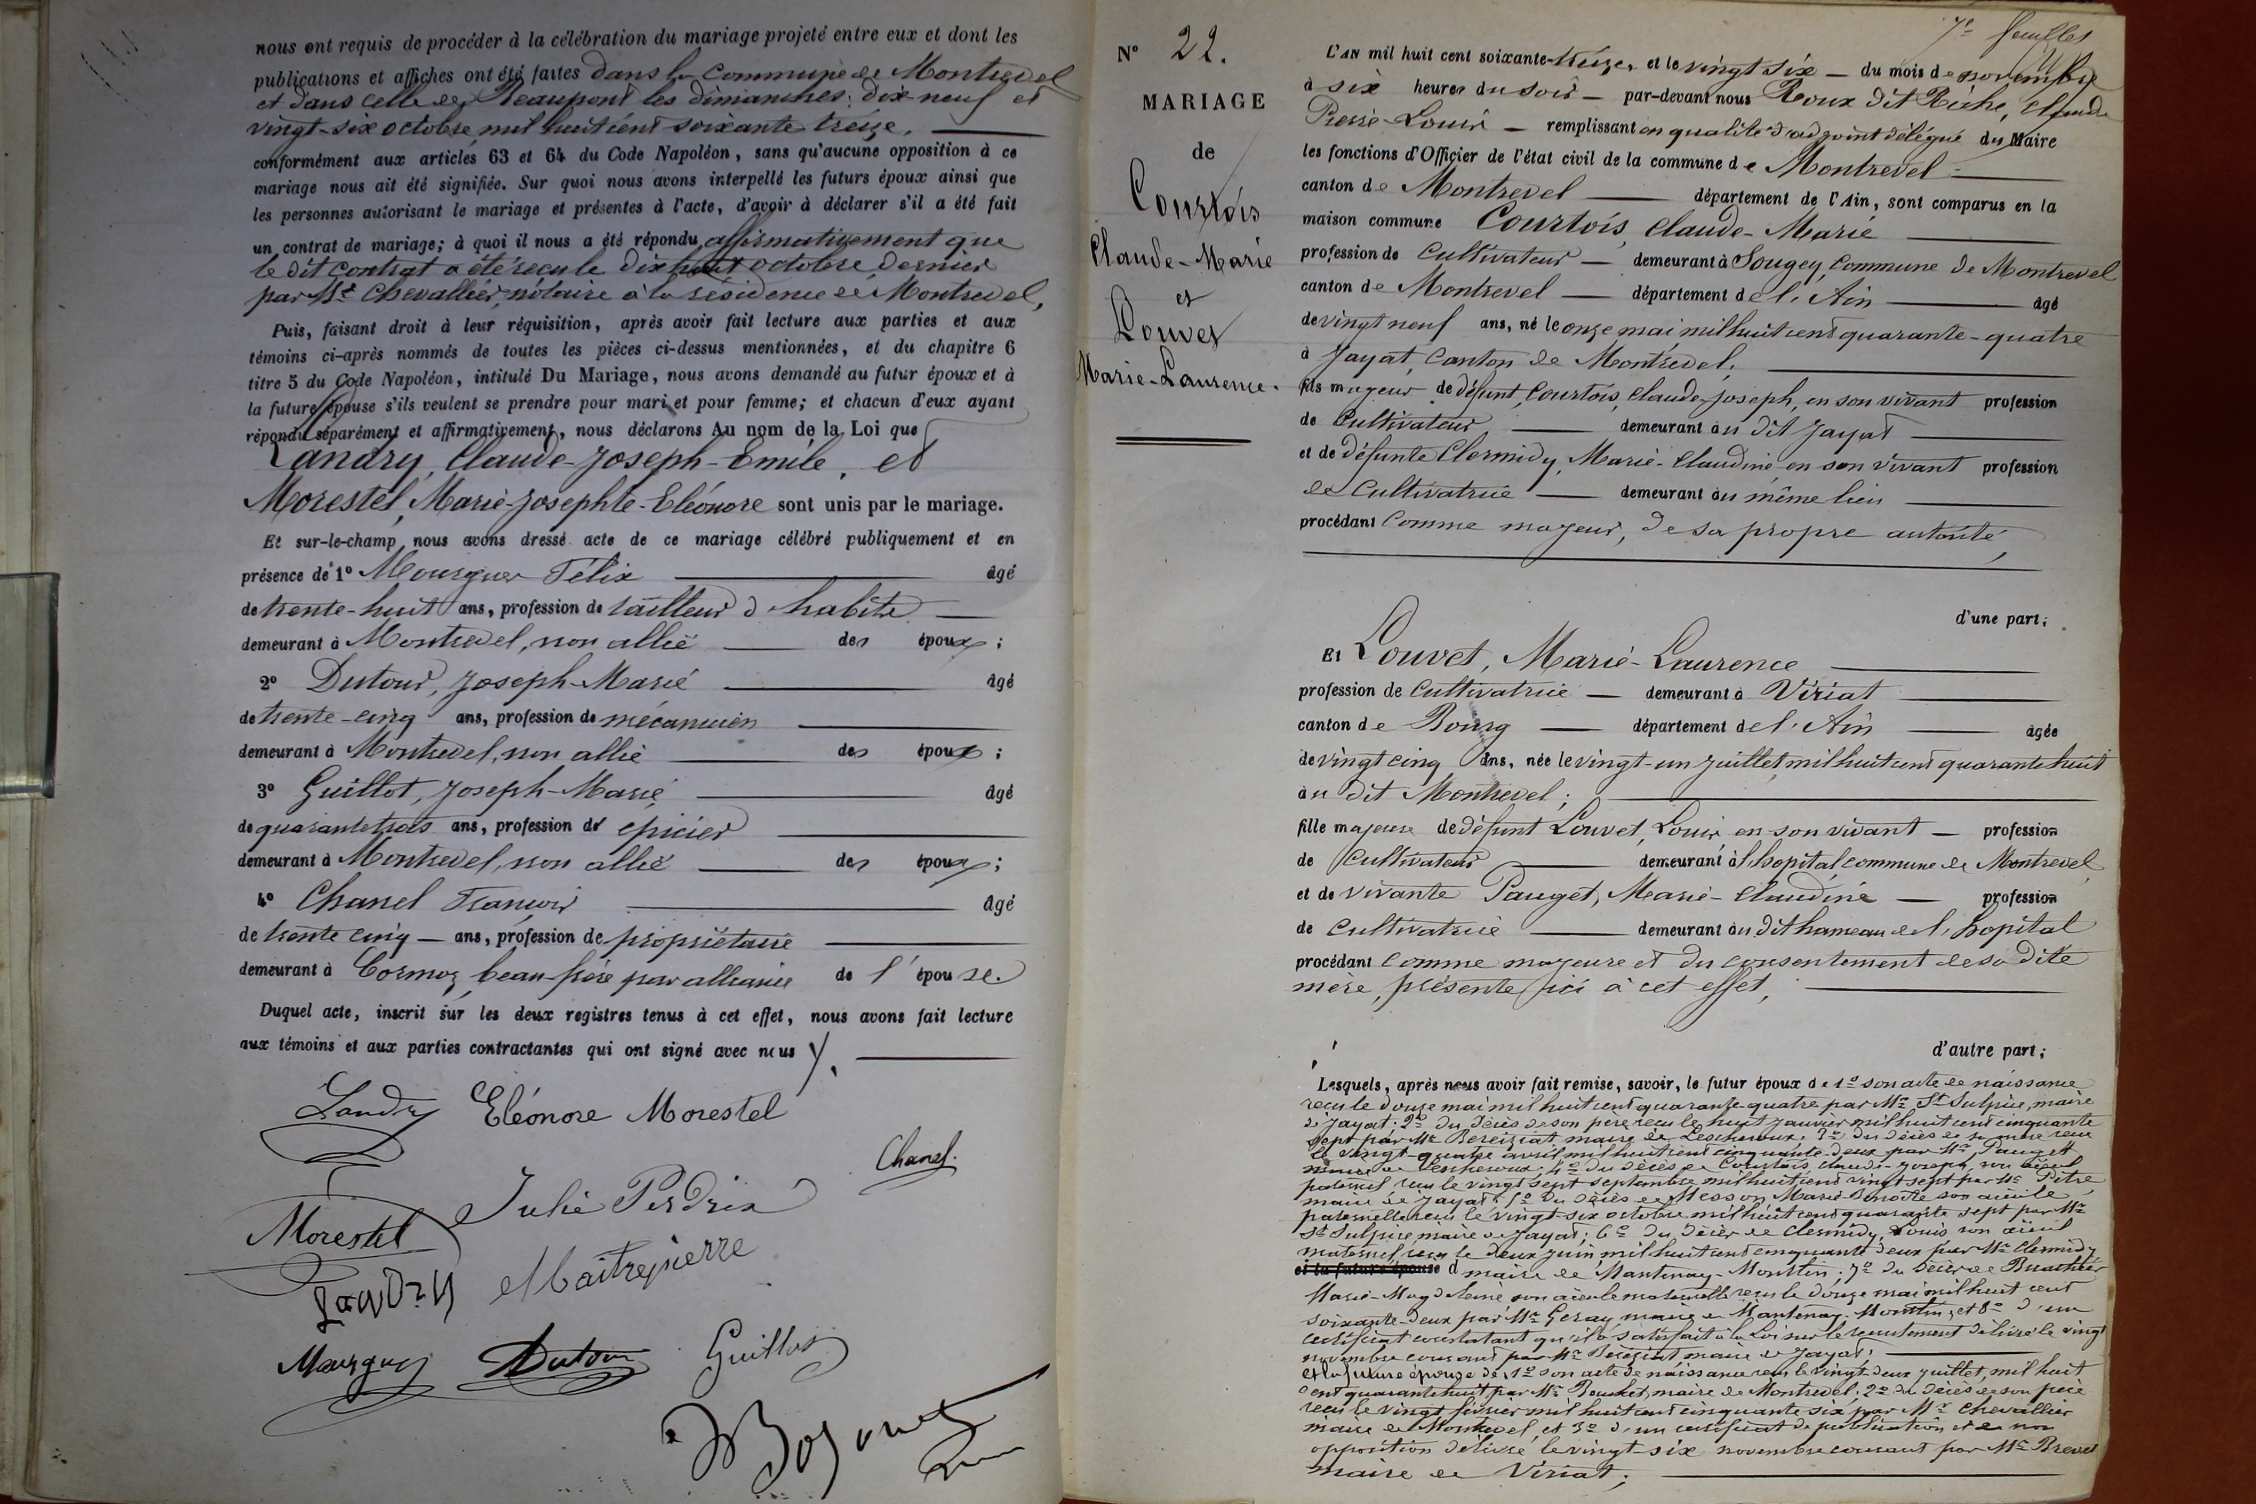 nous ont requis de procéder à la célébration du mariage projeté entre eux et dont les
publications et affiches ont été faites dans la Commune de Montrevel
et dans celle de Beaupont les dimanches: dix neuf et
vingt-six octobre mil huit cent soixante treize.
conformément aux articles 63 et 64 du Code Napoléon, sans qu'aucune opposition à ce
mariage nous ait été signifiée. Sur quoi nous avons interpellé les futurs époux ainsi que
les personnes autorisant le mariage et présentes à l'acte, d'avoir à déclarer s'il a été fait
un contrat de mariage; à quoi il nous a été répondu affirmativement que
le dit contrat a été reçu le dix huit octobre dernier
par Me Chevallier, notaire à la résidence de Montrevel,
Puis, faisant droit à leur réquisition, après avoir fait lecture aux parties et aux
témoins ci-après nommés de toutes les pièces ci-dessus mentionnées, et du chapitre 6
titre 5 du Code Napoléon, intitulé Du Mariage, nous avons demandé au futur époux et à
la future épouse s'ils veulent se prendre pour mari et pour femme; et chacun d'eux ayant
répondu séparément et affirmativement, nous déclarons Au nom de la Loi que
Landry, Claude-Joseph-Emile, et
Morestel, Marie-Josephte-Eléonore sont unis par le mariage.
Et sur-le-champ nous avons dressé acte de ce mariage célébré publiquement et en
présence de 1° Mourguer Félix âgé
de trente-huit ans, profession de tailleur d'habits
demeurant à Montrevel, non allié des époux;
2° Dutour, Joseph-Marie âgé
de trente-cinq ans, profession de mécanicien
demeurant à Montrevel, non allié des époux;
3° Guillot, Joseph-Marie âgé
de quarante trois ans, profession de épicier
demeurant à Montrevel, non allié des époux;
4° Chanel François âgé
de trente cinq ans, profession de propriétaire
demeurant à Cormoz, beau-frère par alliance de l'épouse.
Duquel acte, inscrit sur les deux registres tenus à cet effet, nous avons fait lecture
aux témoins et aux parties contractantes qui ont signé avec nous
Landry Eléonore Morestel
Chanel.
Julie Perdrix
Morestel
Maitrepierre
Landry
Mourguer Dutour Guillot
7e feuillet
N° 22.
MARIAGE
de
Courtois
Claude-Marie
et
Louvet
Marie-Laurence.
L'AN mil huit cent soixante-treize, et le vingt six du mois de novembre
à six heures du soir par-devant nous Roux dit Riche, Claude
Pierre-Louis remplissant en qualité d'adjoint délégué du Maire
les fonctions d'Officier de l'état civil de la commune de Montrevel
canton de Montrevel département de l'Ain, sont comparus en la
maison commune Courtois, Claude-Marie
profession de Cultivateur demeurant à Sougey, Commune de Montrevel
canton de Montrevel département de l'Ain âgé
de vingt neuf ans, né le onze mai mil huit cent quarante-quatre
à Jayat, Canton de Montrevel,
fils majeur de défunt, Courtois, Claude-Joseph, en son vivant profession
de Cultivateur demeurant au dit Jayat
et de défunte Clermidy, Marie-Claudine en son vivant profession
de Cultivatrice demeurant au même lieu
procédant comme majeur, de sa propre autorité,
d'une part;
Et Louvet, Marie-Laurence
profession de Cultivatrice demeurant à Viriat
canton de Bourg département de l'Ain âgée
de vingt cinq ans, née le vingt-un juillet mil huit cent quarante huit
au dit Montrevel;
fille majeure de défunt Louvet, Louis, en son vivant profession
de Cultivateur demeurant à l'hopital, commune de Montrevel,
et de vivante Pauget, Marie-Claudine profession
de Cultivatrice demeurant au dit hameau de l'hopital
procédant comme majeure et du consentement de sa dite
mère, présente ici à cet effet,
d'autre part;
Lesquels, après nous avoir fait remise, savoir, le futur époux de 1° son acte de naissance
reçu le douze mai mil huit cent quarante-quatre par Mr St Sulpice, maire
de Jayat; 2° du décès de son père reçu le huit janvier mil huit cent cinquante
sept par Mr Bereiziat maire de Lescheroux; 3° du décès de sa mère reçu
le vingt-quatre avril mil huit cent cinquante-deux par Mr Pauget
maire de Lescheroux; 4° du décès de Courtois, Claude-Joseph, son aïeul
paternel reçu le vingt sept septembre mil huit cent vingt sept par Mr Pitre
maire de Jayat; 5° du décès de Messon Marie-Benoîte son aïeule
paternelle reçu le vingt-six octobre mil huit cent quarante sept par Mr
St Sulpice maire de Jayat; 6° du décès de Clermidy, Louis son aïeul
maternel, reçu le deux juin mil huit cent cinquante deux par Mr Clermidy
et la future épouse d maire de Mantenay-Montlin; 7° du décès de
Marie-Magdeleine son aïeule maternelle reçu le douze mai mil huit cent
soixante-deux par Mr Geray maire de Mantenay-Montlin; et 8° d'un
certificat constatant qu'il a satisfait à la Loi sur le recrutement délivré le vingt
novembre courant par Mr Bereiziat maire de Jayat;
et la future épouse de 1° son acte de naissance reçu le vingt-deux juillet, mil huit
cent quarante huit, par Mr Bouchet, maire de Montrevel; 2° du décès de son père
reçu le vingt février mil huit cent cinquante six, par Mr Chevallier
maire de Montrevel, et 3° d'un certificat de publication et de non
opposition délivré le vingt-six novembre courant par Mr Brevet
maire de Viriat;